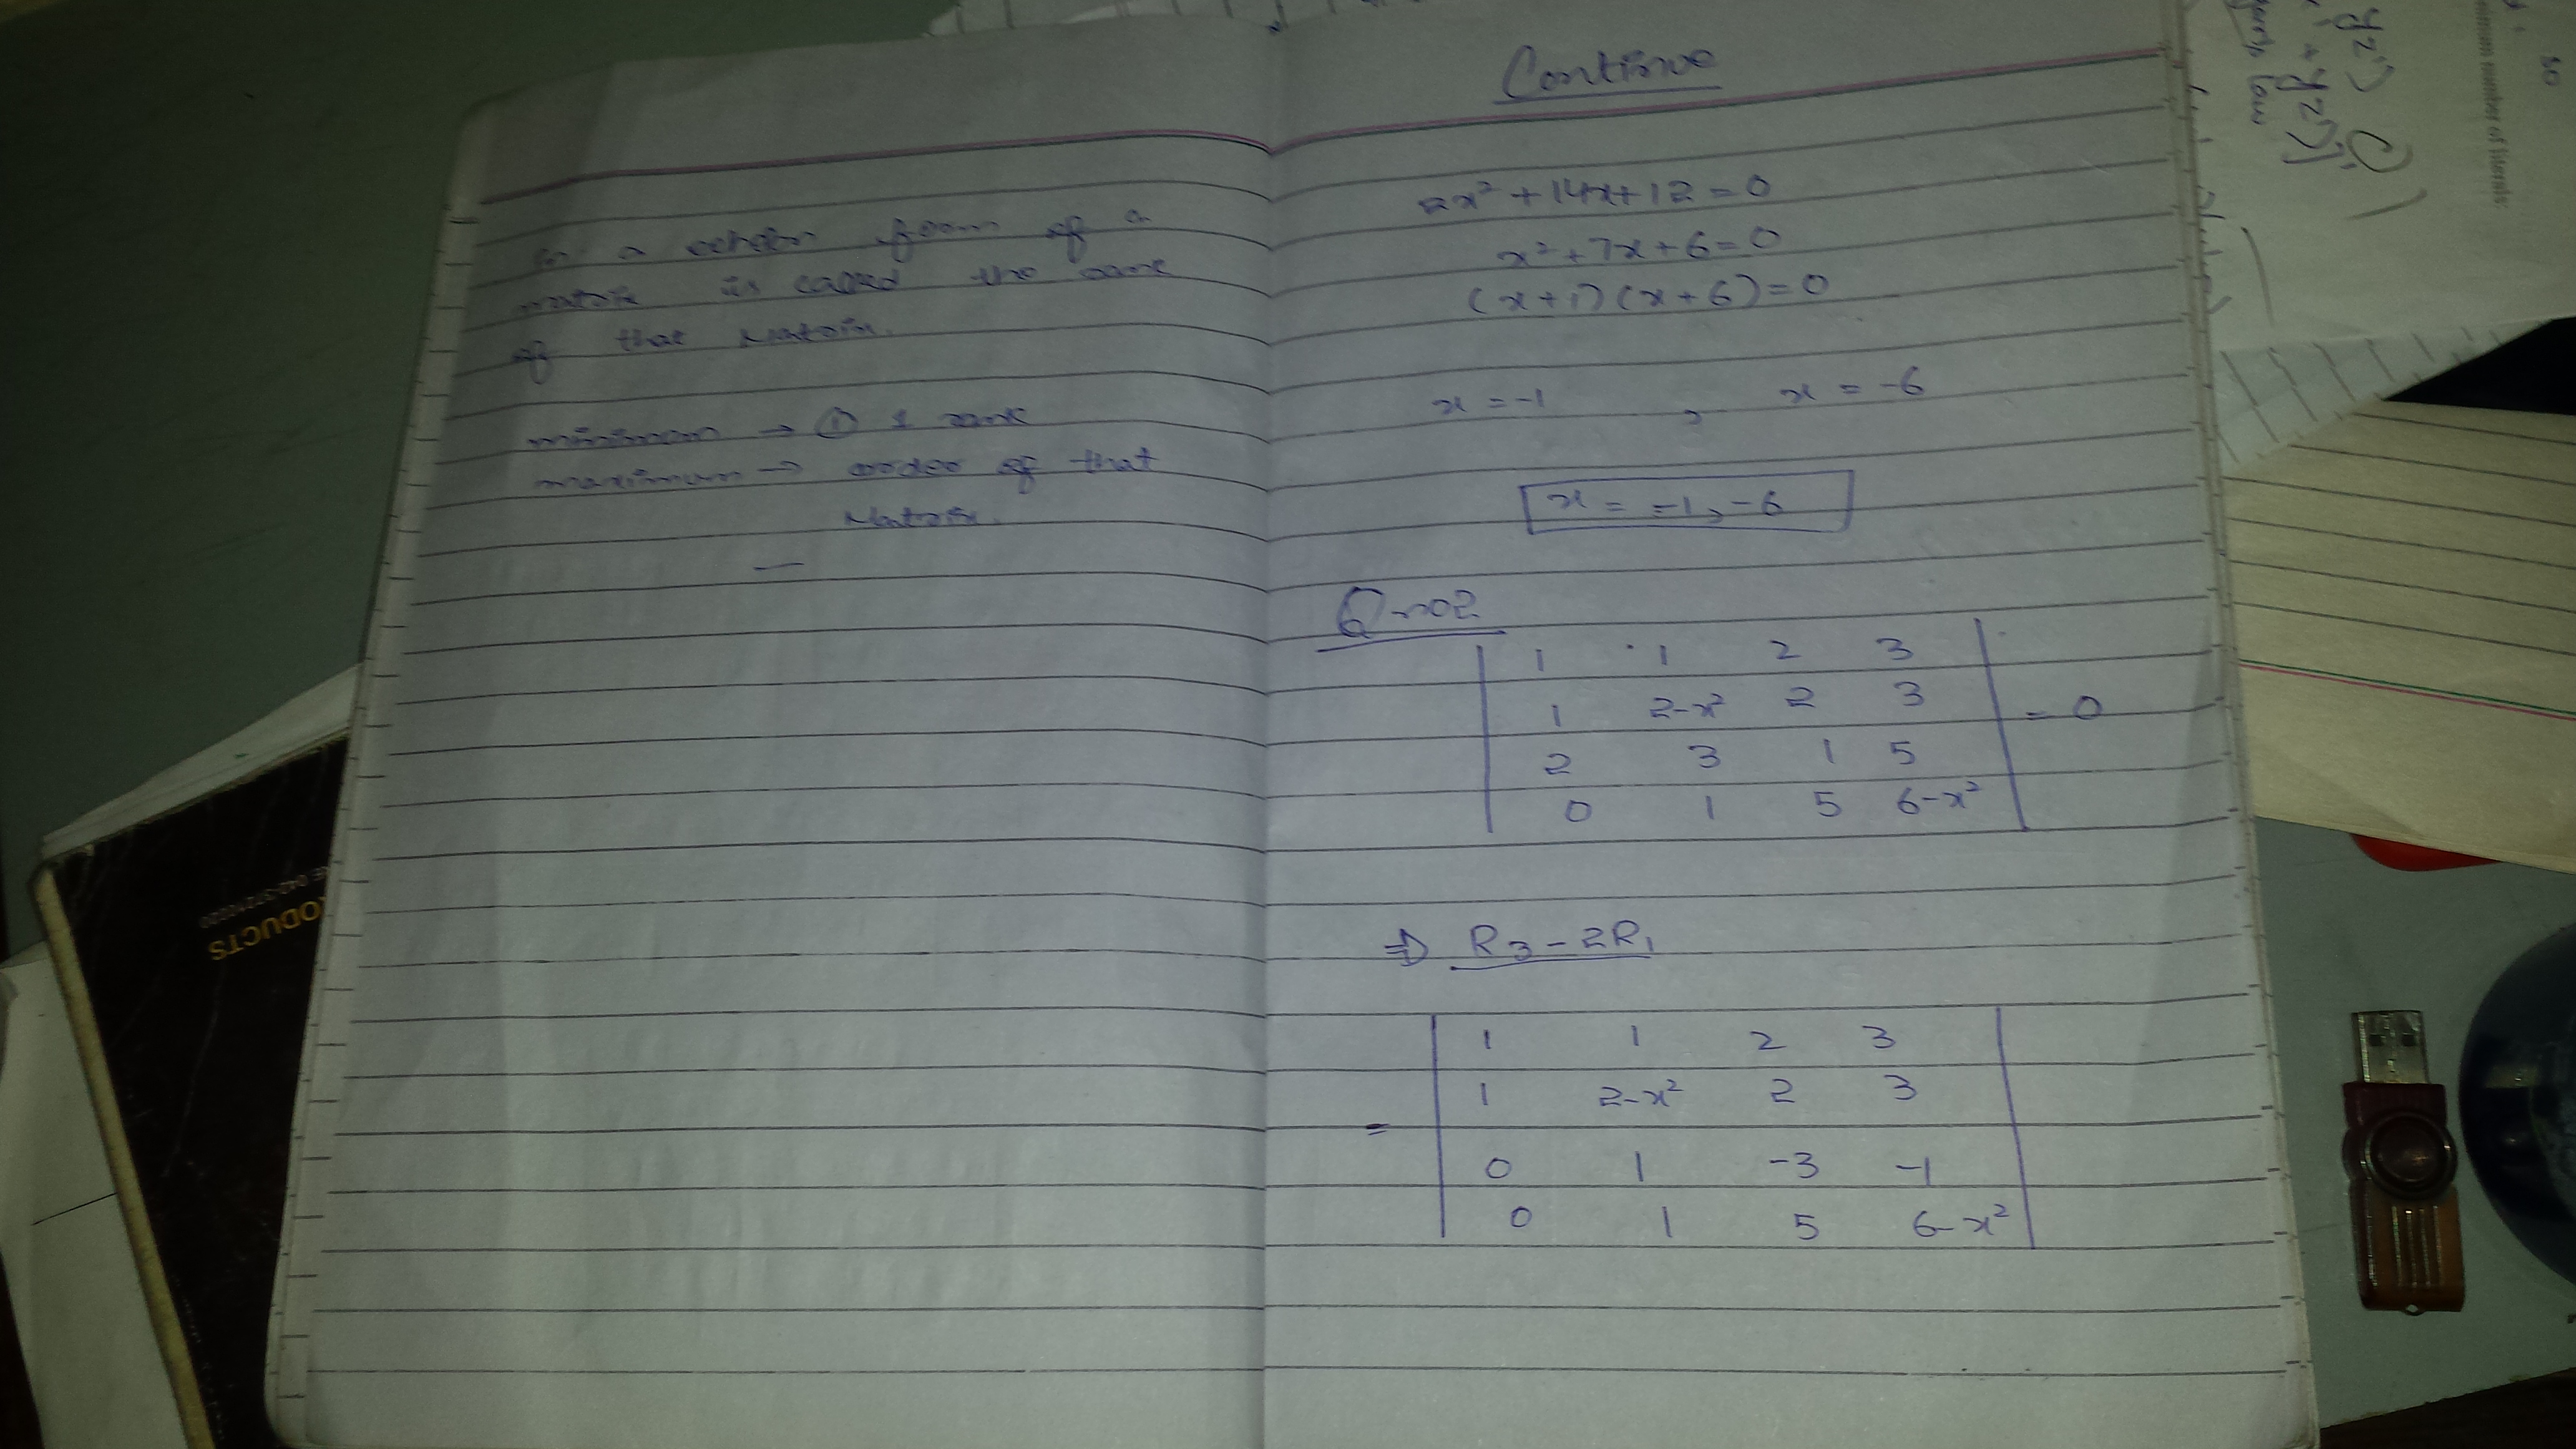 in a echelon form of a
matrix is called the rank
of that Matrix.
minimum → ① 1 rank
maximum → order of that
Matrix.
Continue
2x² + 14x + 12 = 0
x² + 7x + 6 = 0
(x + 1) (x + 6) = 0
x = -1 , x = -6
x = -1, -6
Q no2
1 1 2 3
1 2-x² 2 3 = 0
2 3 1 5
0 1 5 6-x²
⇒ R3 - 2R1
1 1 2 3
1 2-x² 2 3
=
0 1 -3 -1
0 1 5 6-x²